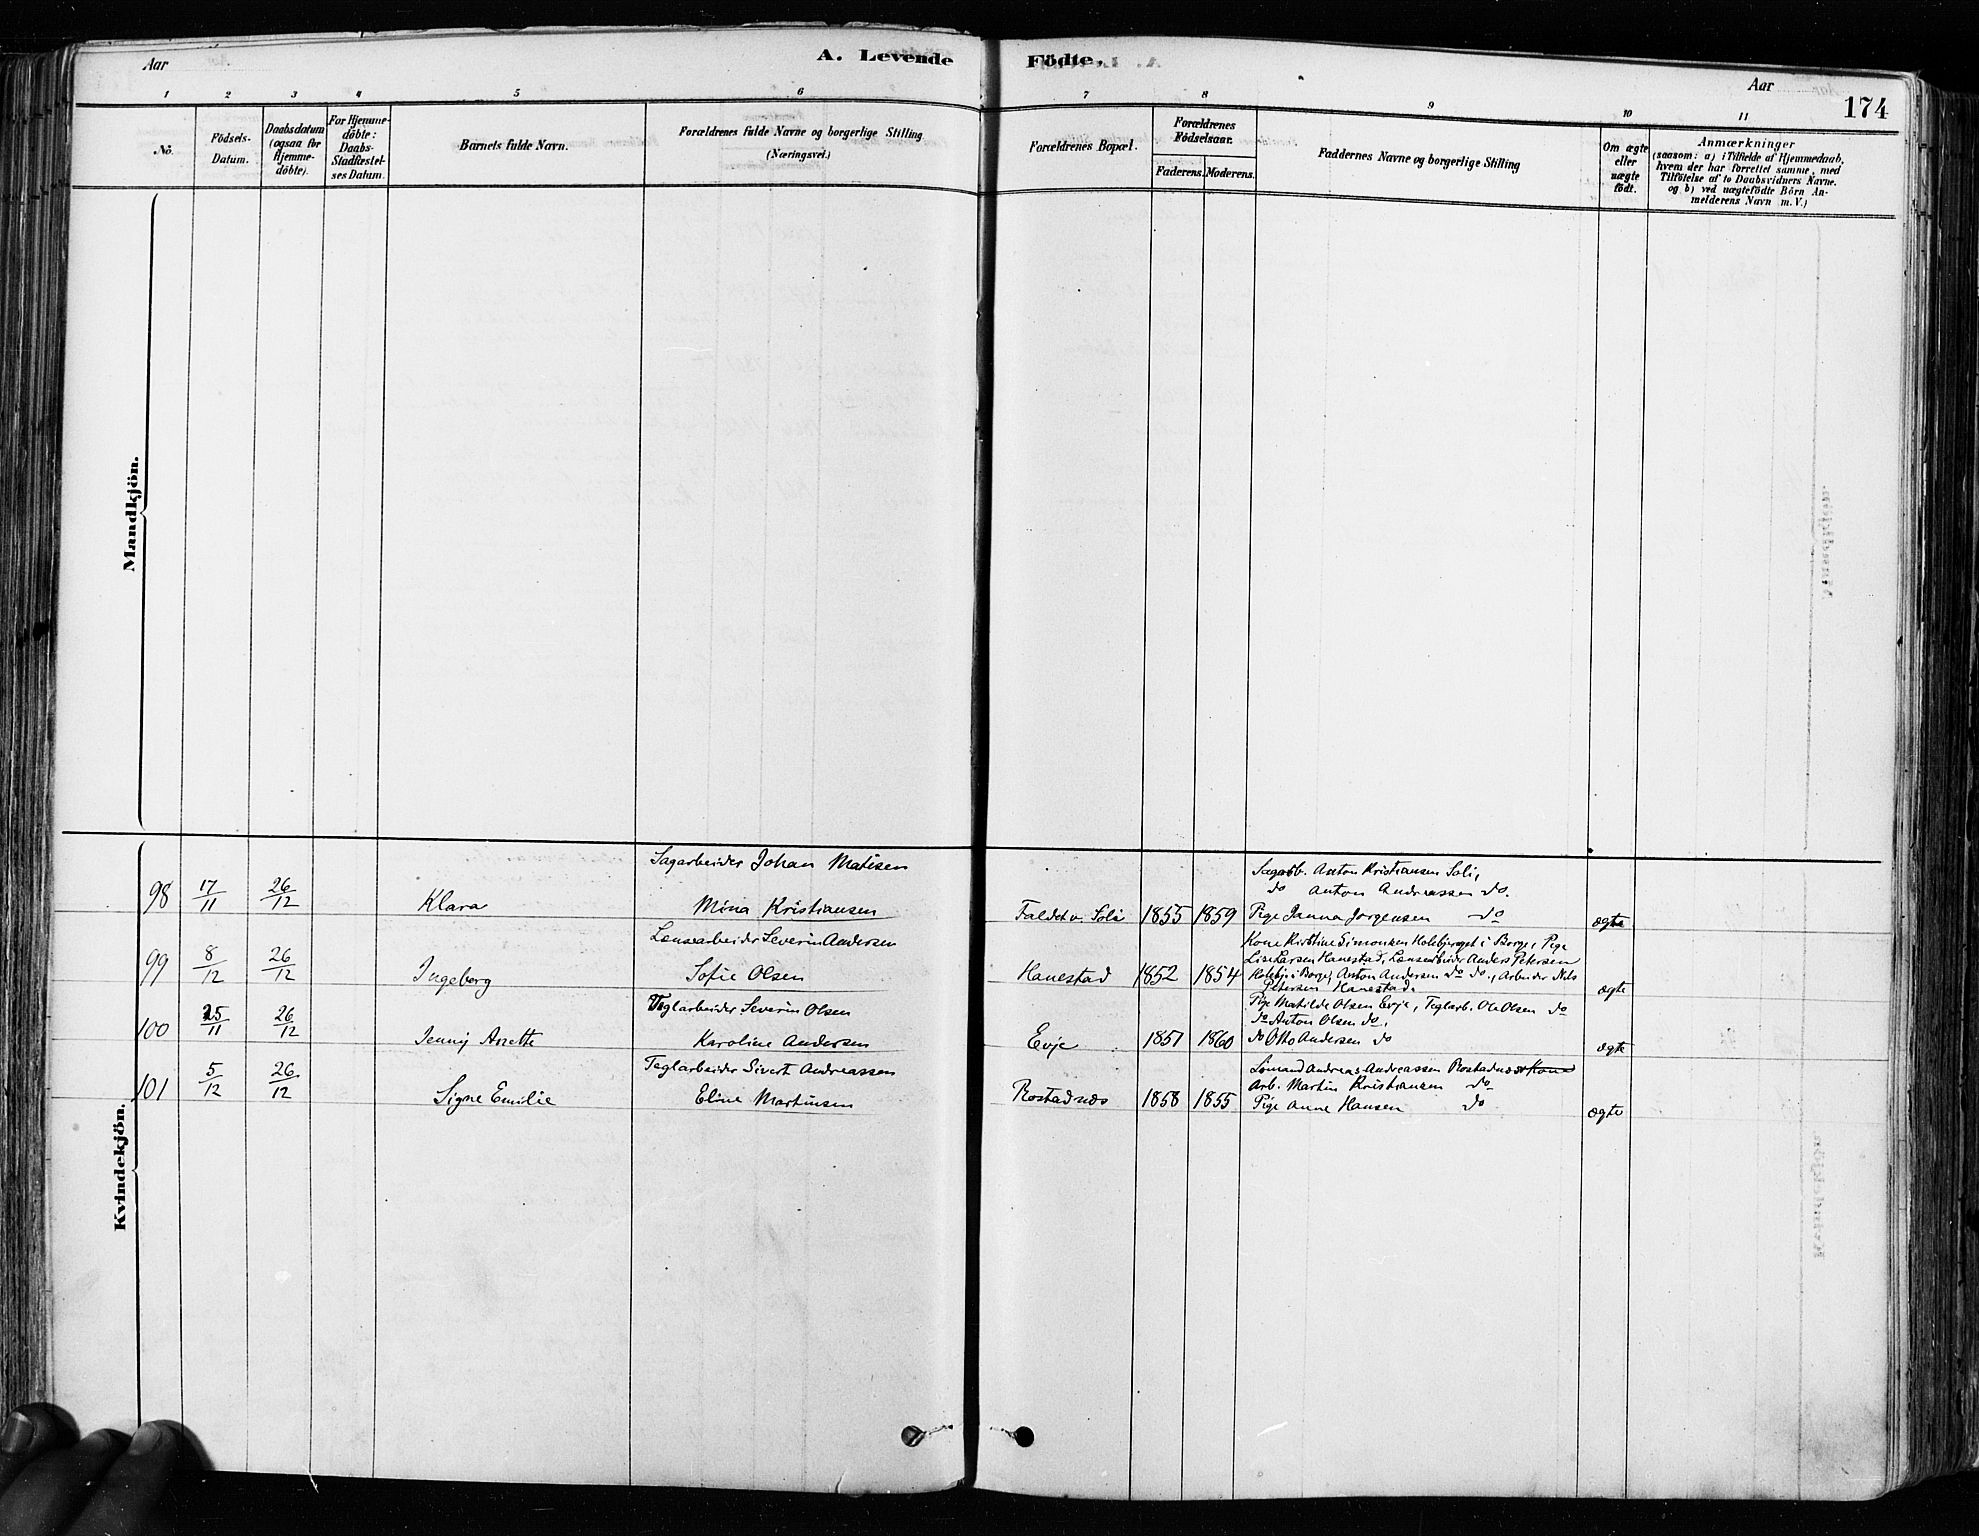 Aar
A. Levende Födte.
Aar
174
1 2 3 4 5 6 7 8 9 10 11
No.
Födsels-Datum.
Daabsdatum (ogsaa for Hjemme-döbte).
For Hjemme-döbte: Daabs-Stadfæstel-ses Datum.
Barnets fulde Navn.
Forældrenes fulde Navne og borgerlige Stilling (Næringsvei.)
Forældrenes Bopæl.
Forældrenes Födselsaar.
Faderens. Moderens.
Faddernes Navne og borgerlige Stilling
Om ægte eller uægte födt.
Anmærkninger
(saasom: a) i Tilfælde af Hjemmedaab,
hvem der har forrettet samme, med
Tilföielse af to Daabsvidners Navne.
og b) ved uægtefödte Börn An-
melderens Navn m. V.)
Mandkjön.
Kvindekjön.
98 17/11 26/12 Klara
Sagarbeider Johan Matisen
Mina Kristiansen
Faldet v. Soli 1855 1859
Sagarb. Anton Kristiansen Soli,
do Anton Andreassen do.
Pige Janna Jorgensen do
ægte
99 8/12 26/12 Ingeborg
Lænsearbeider Severin Andersen
Sofie Olsen
Hanestad 1852 1854
Kone Kirstine Simonsen Holebjerget i Borge, Pige
Lise Larsen Hanestad, Lænsearbeider Anders Petersen
Holebj. i Borge, Anton Andersen do do., Arbeider Nils
Petersen Hanestad.
ægte
100 25/11 26/12 Jenny Anette
Teglarbeider Severin Olsen
Karoline Andersen
Evje 1857 1860
Pige Matilde Olsen Evje, Teglarb. Ole Olsen do
do Anton Olsen do,
do Otto Andersen do
ægte
101 5/12 26/12 Signe Emilie
Teglarbeider Sivert Andreassen
Eline Martinsen
Rostadnæs 1858 1855
Sømand Andreas Andreassen Rostadnæs Kone
Arb. Martin Kristiansen do
Pige Anne Hansen do
ægte